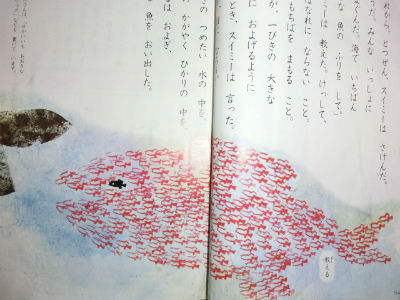 れから、とつぜん、スイミーは さけんだ。
った。みんな いっしょに
ぐんだ。海で いちばん
な 魚の ふりを して。
ミーは 教えた。けっして、
はなれに ならない こと。
もちばを まもる こと。
が、一ぴきの 大きな
に およげるように
とき、スイミーは 言った。
さの つめたい 水の 中を、
の かがやく ひかりの 中を、
は およぎ、
魚を おい出した。
教える